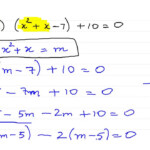 ) (x² + x - 7) + 10 = 0
x² + x = m
(m - 7) + 10 = 0
- 7m + 10 = 0
- 5m - 2m + 10 = 0
m - 5) - 2(m - 5) = 0